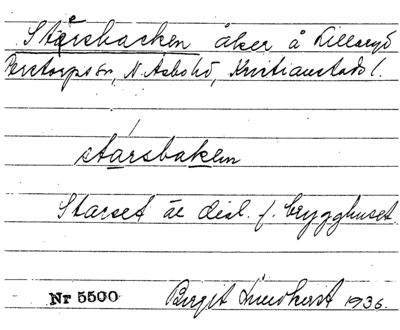 Stårsbacken åker å Lillaryd
Perstorps sn, N. Åsbo hd, Kristianstads l.
stårsbaken
Starset är dial. f. brygghuset
Nr 5500 Birgit Lindkvist 1936.